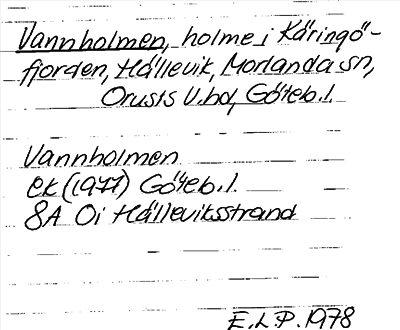 Vannholmen, holme i Käringö-
fjorden, Hällevik, Morlanda sn,
Orusts V. hd, Göteb. l.
Vannholmen
ek (1977) Göteb. l.
8A Oi Hälleviksstrand
E. L. P. 1978